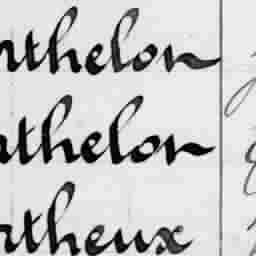 rthelon
rthelon
rtheux